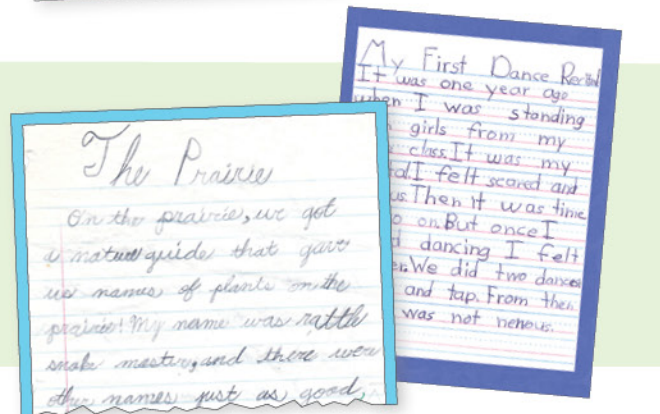 The Prairie
On the prairie, we got
a nature guide that gave
us names of plants on the
prairie! My name was rattle
snake master, and there were
other names just as good,
My First Dance Recital
It was one year ago
when I was standing
girls from my
class. It was my
I felt scared and
us. Then it was time
o on. But once I
d dancing I felt
er. We did two dances
and tap. From then
was not nervous.